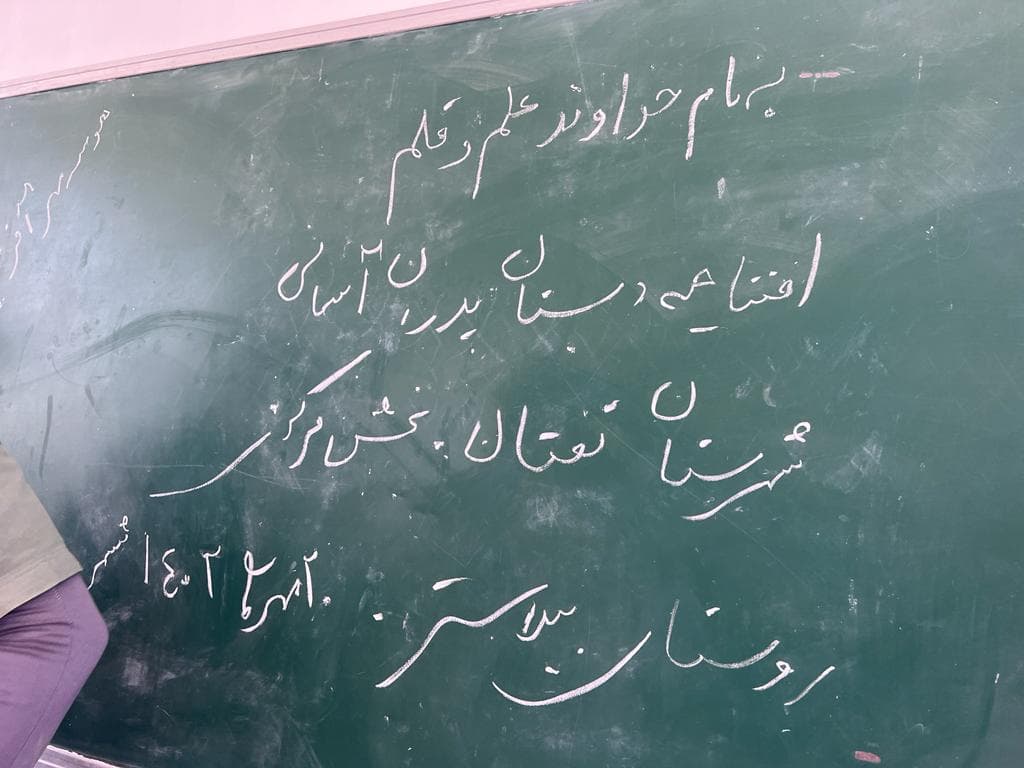 به نام خداوند علم و قلم
افتتاحیه دبستان پدران آسمانی
شهرستان تفتان بخش مرکزی
روستای
۲۰ مهر ماه ۱۴۰۲